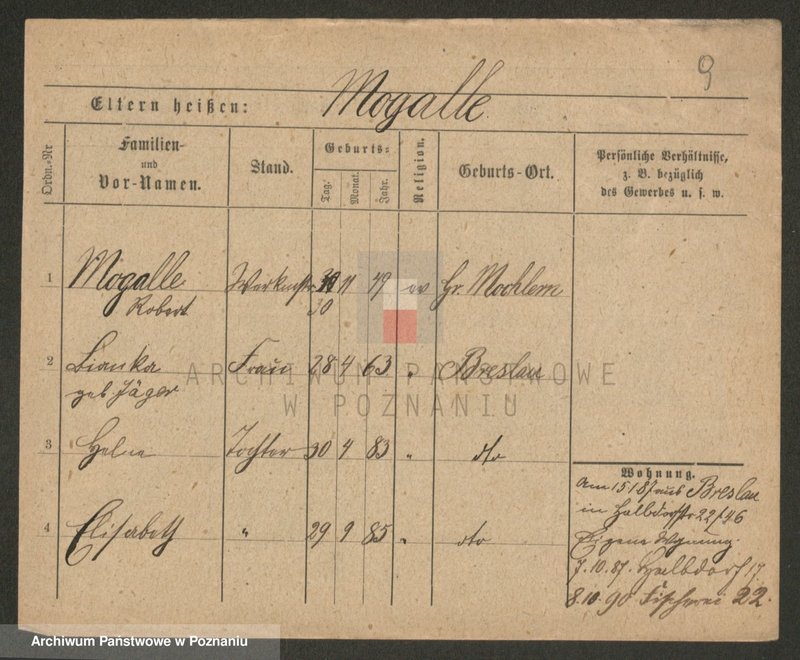 9
Eltern heißen: Mogalle
Ordn.-Nr
Familien-
und
Vor-Namen.
Stand.
Geburts-
Tag.
Monat.
Jahr.
Religion.
Geburts-Ort.
Persönliche Verhältnisse,
z. B. bezüglich
des Gewerbes u. s. w.
1 Mogalle Werkmstr. 11 49 ev Gr. Mochbern
Robert 30
2 Bianka Frau 28 4 63 " Breslau
geb Jäger
3 Helene Tochter 30 4 83 " dto
4 Elisabeth " 29 9 85 " dto
Wohnung.
Am 15 1 87 aus Breslau
in Halbdorfstr 22/46
Eigene Wohnung.
7.10.87. Halbdorf 17
8.10.90 Fischerei 22.
ARCHIWUM PAŃSTWOWE
W POZNANIU
Archiwum Państwowe w Poznaniu